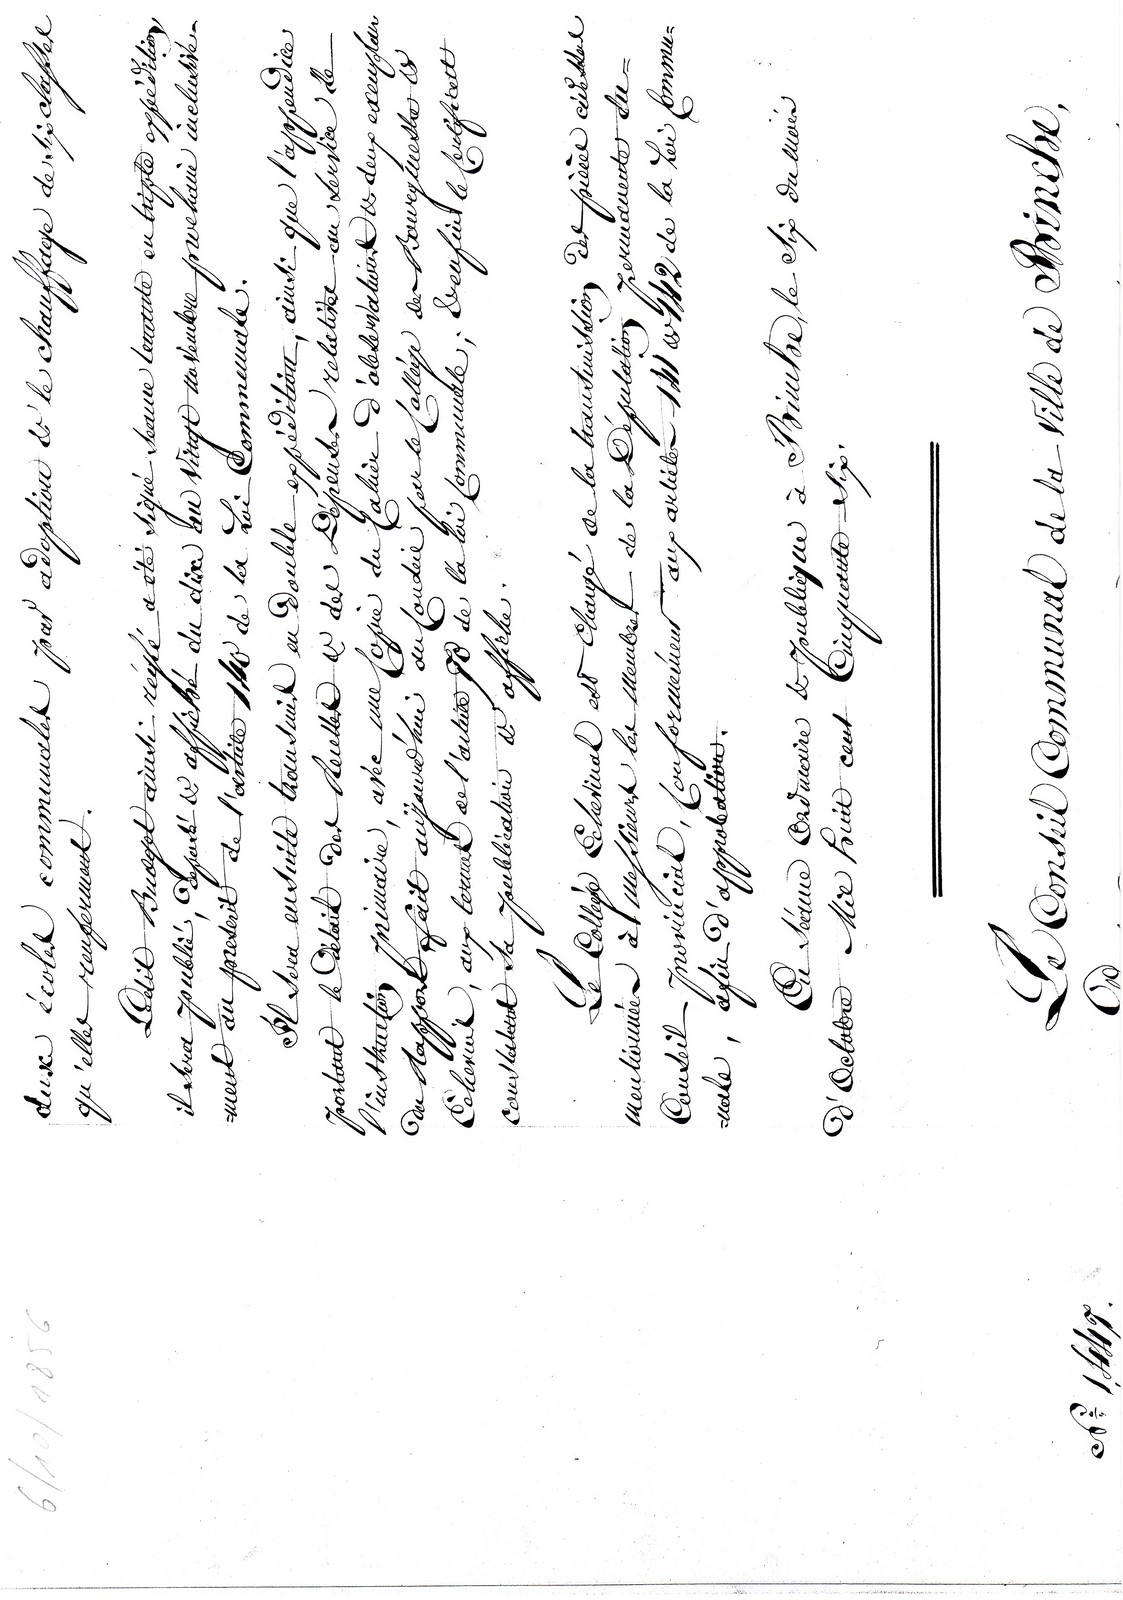 6/10/1856
deux écoles communales par adoption & le chauffage de six classes
qu'elles renferment.
Ledit Budget ainsi réglé a été signé séance tenante en triple expédition,
il sera publié, déposé & affiché du dix au vingt novembre prochain inclusive-
=ment au prescrit de l'article 140 de la Loi Communale.
Il sera ensuite transmis en double expédition, ainsi que l'appendice
portant le Détail des Recettes & des Dépenses relatives au service de
l'instruction primaire, avec une Copie du Cahier d'observations & deux exemplaires
du Rapport fait aujourd'hui au Conseil par le Collége de Bourgmestre &
Echevins, aux termes de l'article 70 de la loi Communale; & enfin le Certificat
constatant sa publication & affiche.
Le Collége Echevinal est chargé de la transmission des pièces cidessus
mentionnées à Messieurs les membres de la Députation permanente du=
Conseil Provincial, Conformément aux articles 141 & 142 de la Loi Commu=
=nale, afin d'approbation.
En Séance Ordinaire & publique à Binche, le Six du mois
d'Octobre Mil huit cent Cinquante-Six.
Le Conseil Communal de la Ville de Binche,
N° 1447.